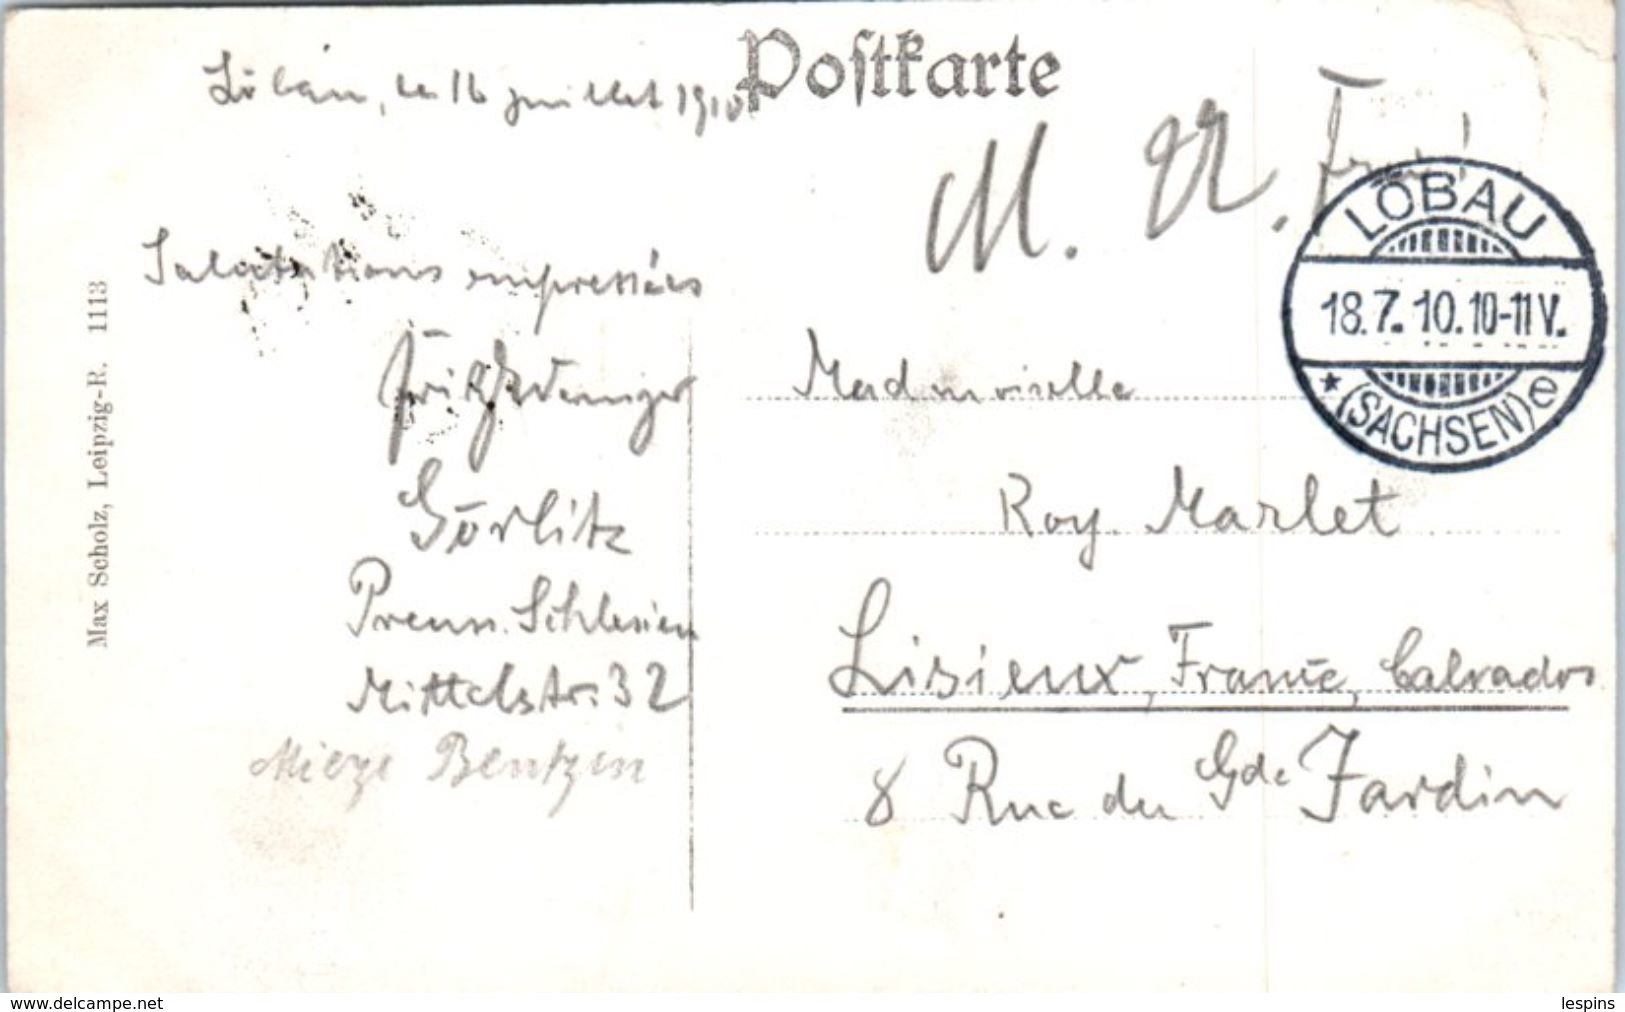 Postkarte
Löbau, le 16 juillet 1910
Salutations empressées
Fritz
Görlitz
Preuss. Schlesien
Mittelstr. 32
Mieze Bentzin
Max Scholz, Leipzig-R. 1113
M.
LÖBAU
18.7.10.10-11V.
* (SACHSEN) e
Mademoiselle
Roy. Marlet
Lisieux, France, Calvados
8 Rue du Gde Jardin
www.delcampe.net
lespins